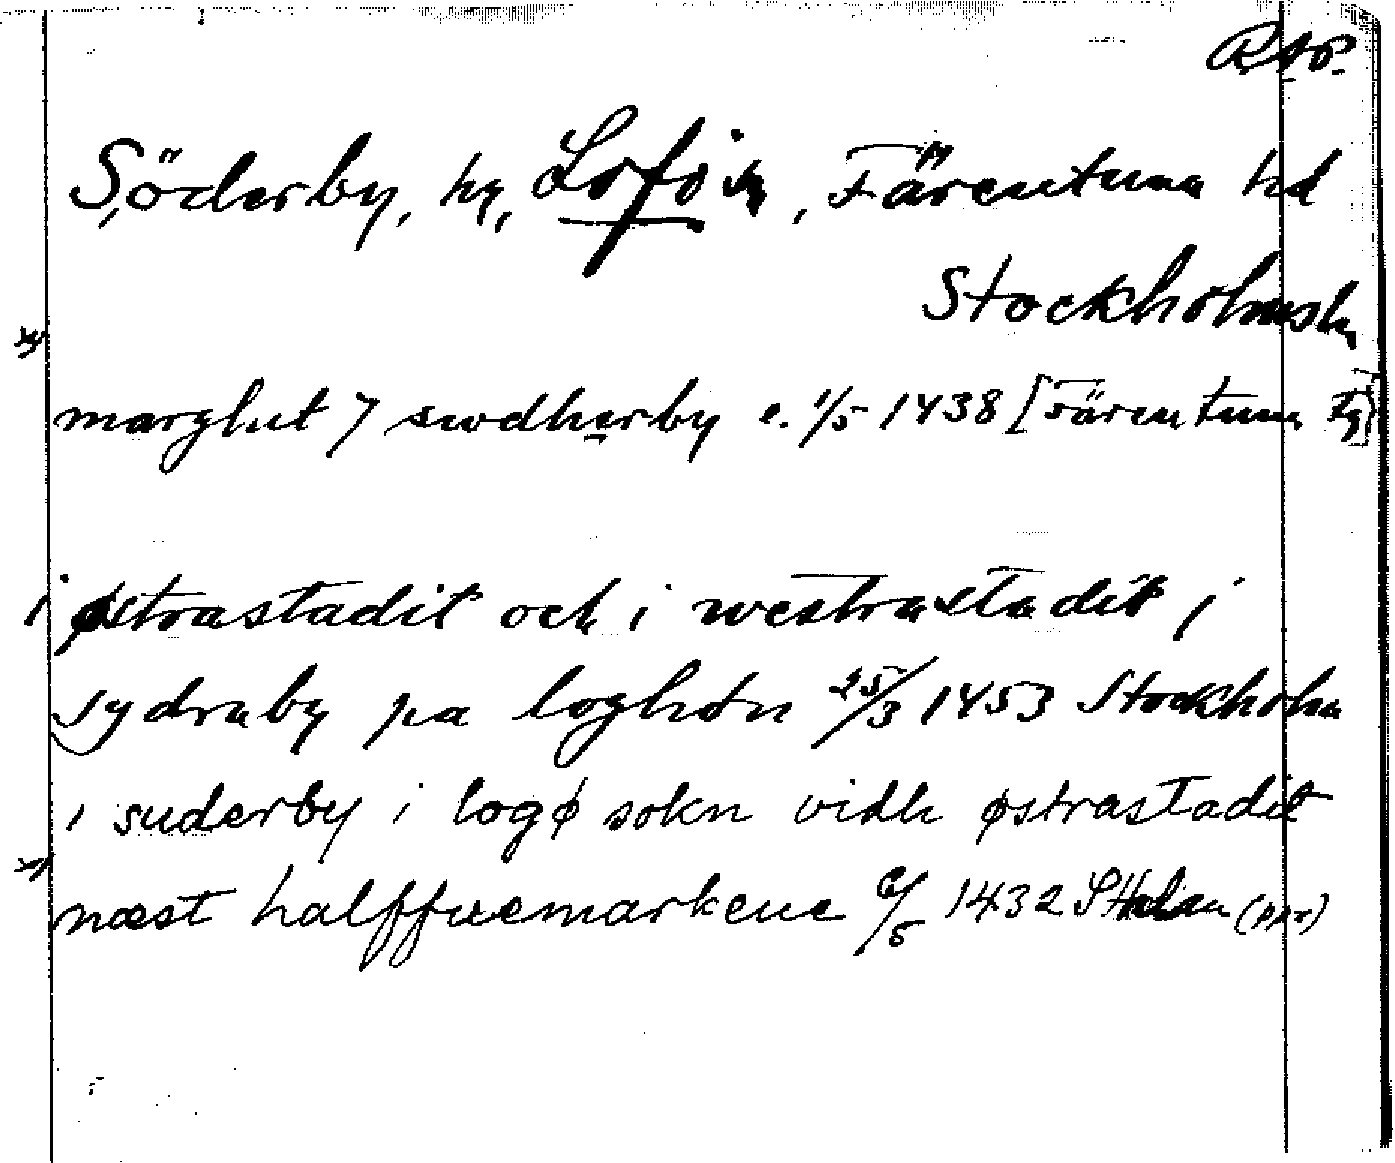 RAP.
Söderby, by, Lofö sn, Färentuna hd
Stockholms ln
marghet j swdherby e. 1/5 1438 [Färentuna tg]
i østrastadit och i westrastadit j
sydraby pa loghøn 25/3 1453 Stockholm
i suderby i logø sokn vidh østrastadit
næst halffuemarkene 6/5 1432 SHolm (RAP)